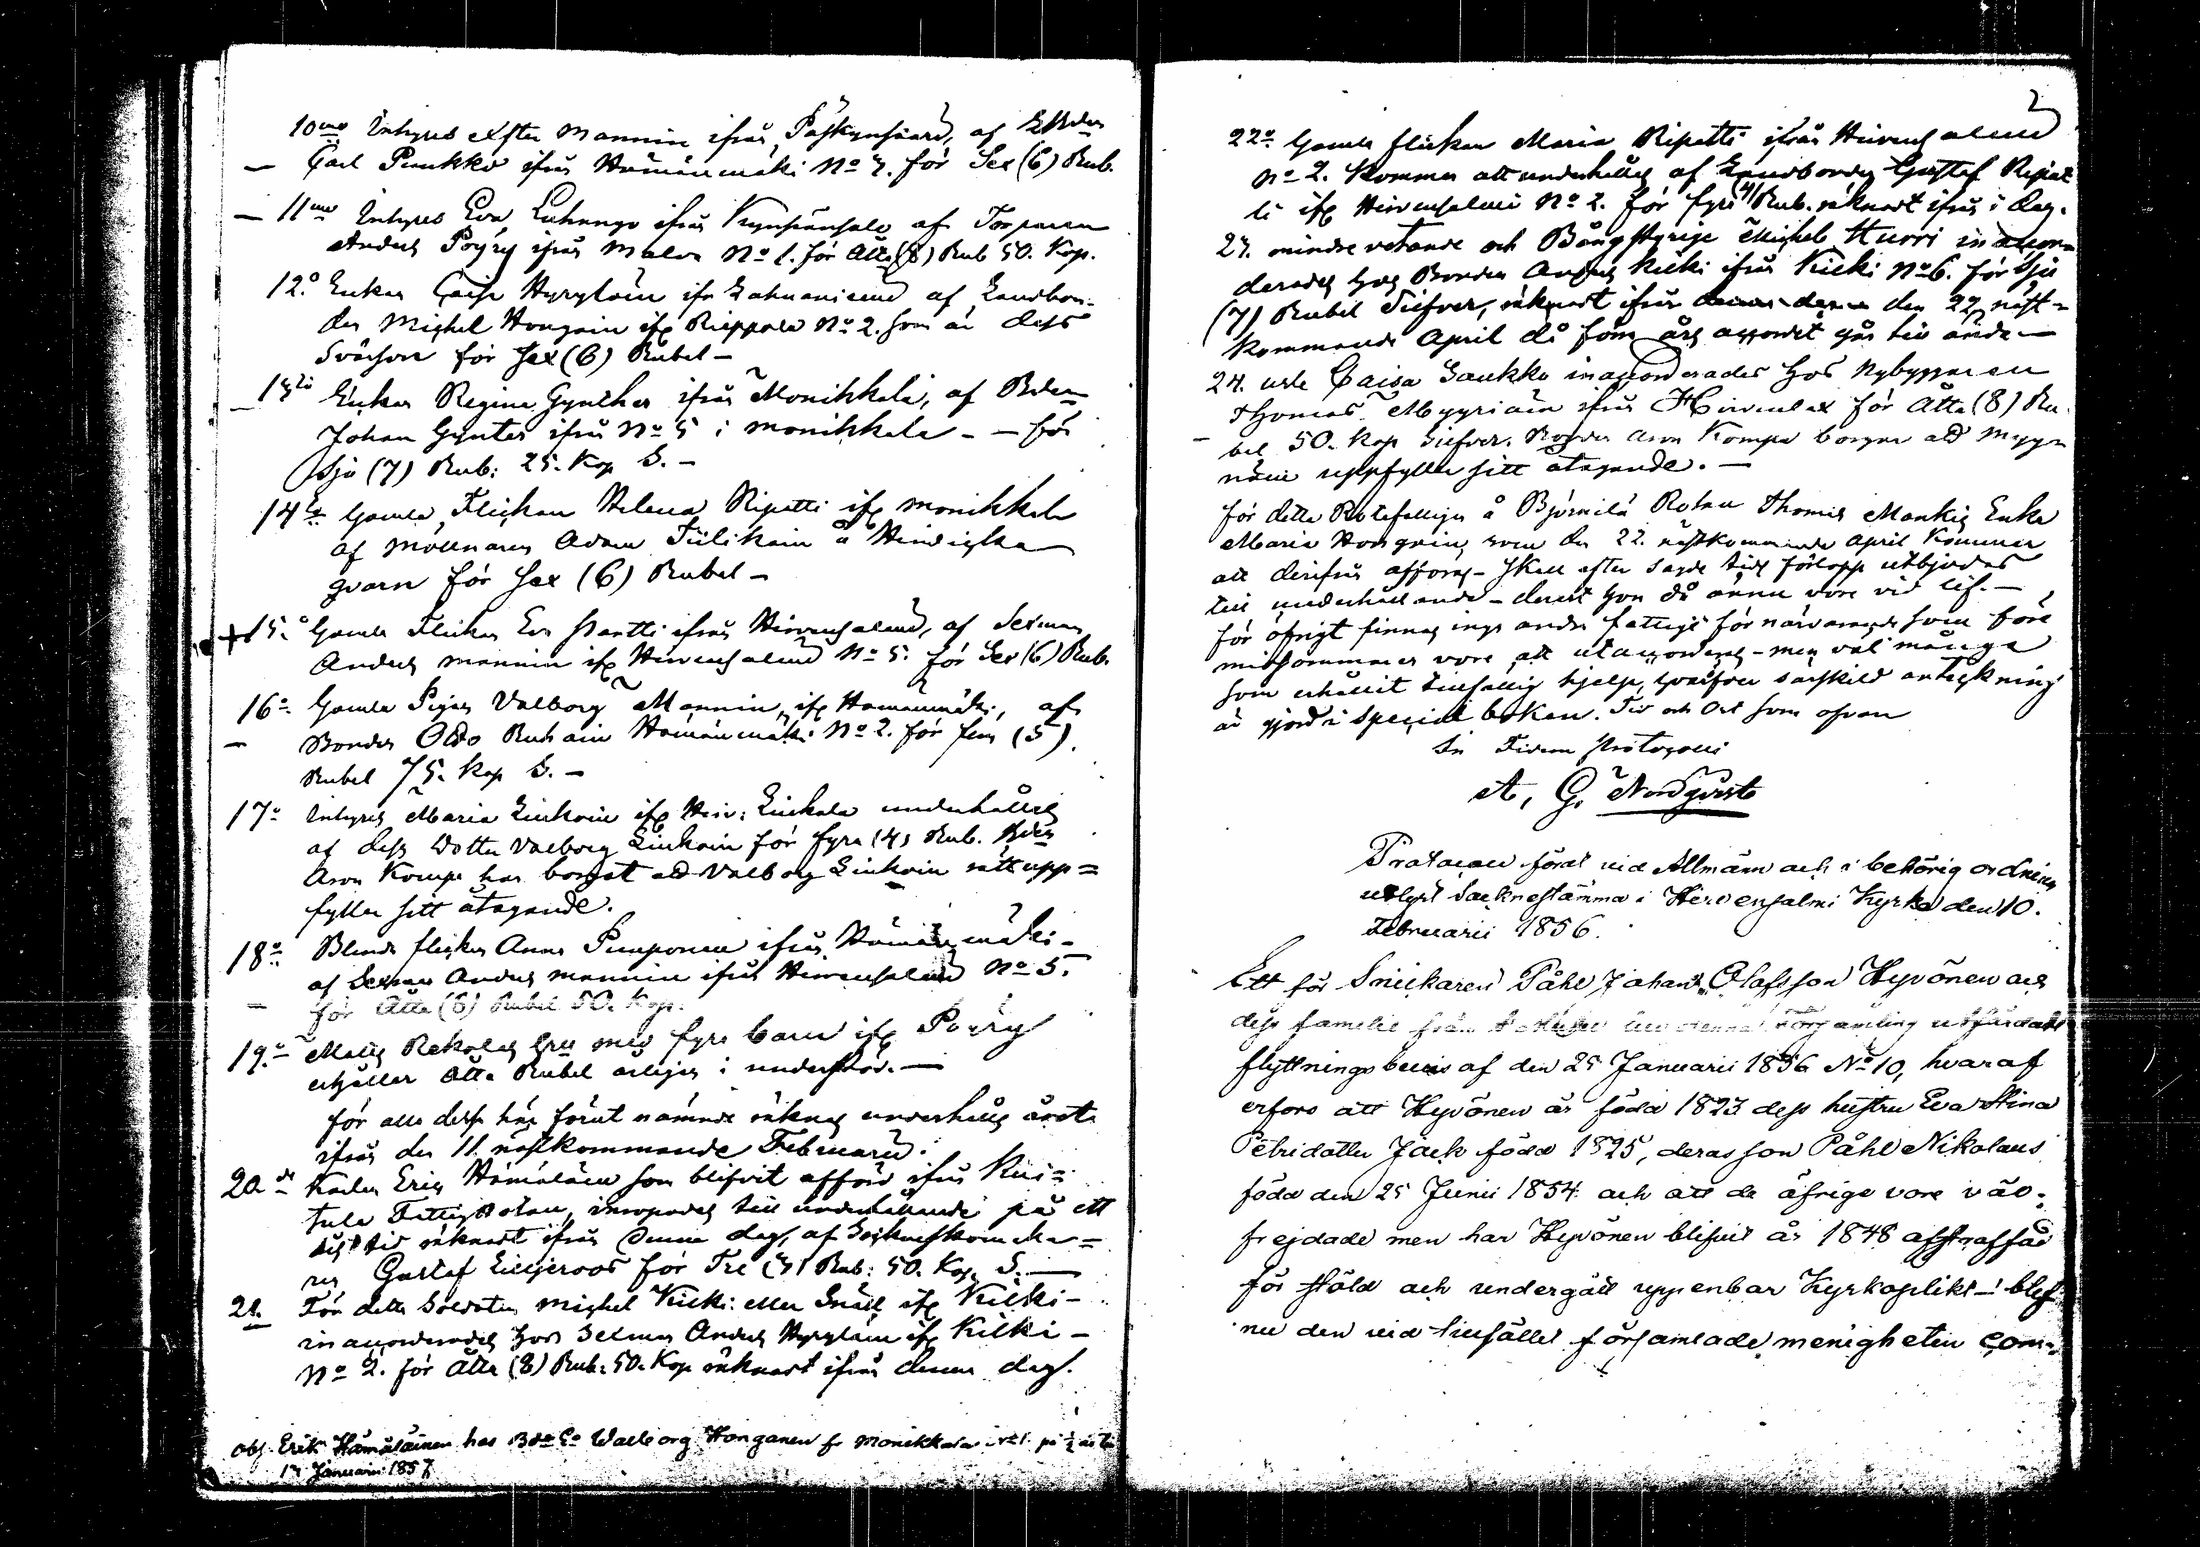 10mo Inhyses Ester Mannin ifrån Paskynsaari, af
Carl Pinukko ifrån Hämänmäki No 7. för Sex (6) Rub.
11mo Inhyses Eva af Torparen
Anders Pöyry ifrån Malva No 1. för Åtta (8) Rub 50. Kop.
12o Enkan Caisa Hyryläin af Landbon-
den Michel Hongain Rieppola No 2. som är dess
Svärson för sex (6) Rubel –
Enkan Regina Gynther ifrån Monikkala, af
Johan Gynter ifrån No 5 i Monikkala – – för
Sju (7) Rub: 25. Kop S. –
14 Gamla Flickan Helena Ripatti Monikkala
af Mölnaren Adam Tiilikain å
qvarn för Sex (6) Rubel –
15.o Gamla Flickan Eva Partti ifrån Hirvensalmi, af
Anders Mannin Hirvensalmi No 5. för Sex (6) Rub.
16o Gamla Pigan Valborg Mannin, Hämänmäki, af
Bonden Hämänmäki No 2. för fem (5)
Rubel 75. Kop S. –
17o Inhyses Maria Liukoin underhålles
af dess Dotter Valborg Liukoin för fyra (4) Rub.
Aron Kompa har borgat att Valborg Liukoin rätt upp=
fyller sitt åtagande.
18o Blinda flickan Anna Pimponen ifrån Hämänmäki –
af Anders Mannin ifrån Hirvensalmi No 5.
för Åtta (8) Rubel 50. Kop.
19.o med fyra barn Pöyry
erhåller Åtta Rubel årligen i understöd. –
för alla dessa här förut nämnde räknas underhålls året
ifrån den 11. nästkommande Februarii.
20de Karlen Eric Hämäläin som blifvit afförd ifrån
till underhållande på ett
tid räknadt ifrån denna dag, af
Gustaf Liljeroos för Tre (3) Rub: 50. Kop. S. –
21. För detta Soldaten Michel Kilki eller Snäll Kilki –
inaccorderades hos Anders Hyryläin Kilki –
No 2. för Åtta (8) Rub: 50. Kop räknadt ifrån denna dag.
Obs. Erik Hämäläinen hos Walborg Honganen fr Monikkala
Januarii 1857
2
22o Gamla flickan Maria Ripatti ifrån Hirvensalmi
No 2. Kommer att underhållas af Landbonden Gustaf Ripat
ti Hirvensalmi No 2. för fyra (4) Rub. räknadt ifrån i dag.
23. mindre vetande och Bångstyrige Michel Hurri inaccor=
derades hos Bonden Anders Kilki ifrån Kilki No 6. för Sju
(7) Rubel Silfver, räknadt ifrån den 22 näst=
kommande April då förra års accordet går till ända –
24. Caisa Laukko inaccorderades hos Nybyggaren
Thomas Myyriäin ifrån för Åtta (8) Ru
bel 50. Kop Silfver. Aron Kompa borgar att Myy=
riäin uppfyller sitt åtagande. –
för detta Rotefattigen å Björnilä Rotan Thomas Mankis Enka
Maria Hongain, som den 22. nästkommande April kommer
att derifrån afföras – skall efter sagde tids förlopp utbjudas
till underhållande – derest hon då ännu vore vid lif. –
för öfrigt finnas inga andra fattige för närvarande som före
midsommaren vore att utaccorderas – men väl många
som erhållit tillfällig hjelp, hvaröfver särskild antekning
är gjord i special boken. Tid och Ort som ofvan
In Fidem Protocolli
A, G. Nordqvist
Protocoll fördt vid Allmänn och i behörig ordning
utlyst Socknestämma i Hirvensalmi Kyrka den 10.
Februarii 1856.
Ett för Snickaren Påhl Johan Olafsson Hyvönen och
dess familie från församling utfärdadt
flyttningsbevis af den 25 Januarii 1856 No 10, hvaraf
erfors att Hyvönen är född 1823 dess hustru Eva Stina
Petridotter Jack född 1825, deras son Påhl Nikolaus
född den 25 Junii 1854 och att de öfrige vore väl=
frejdade men har Hyvönen blifvit år 1848 afstraffad
för stöld och undergått uppenbar Kyrkoplikt –! blef
nu den vid tillfället församlade menigheten com=